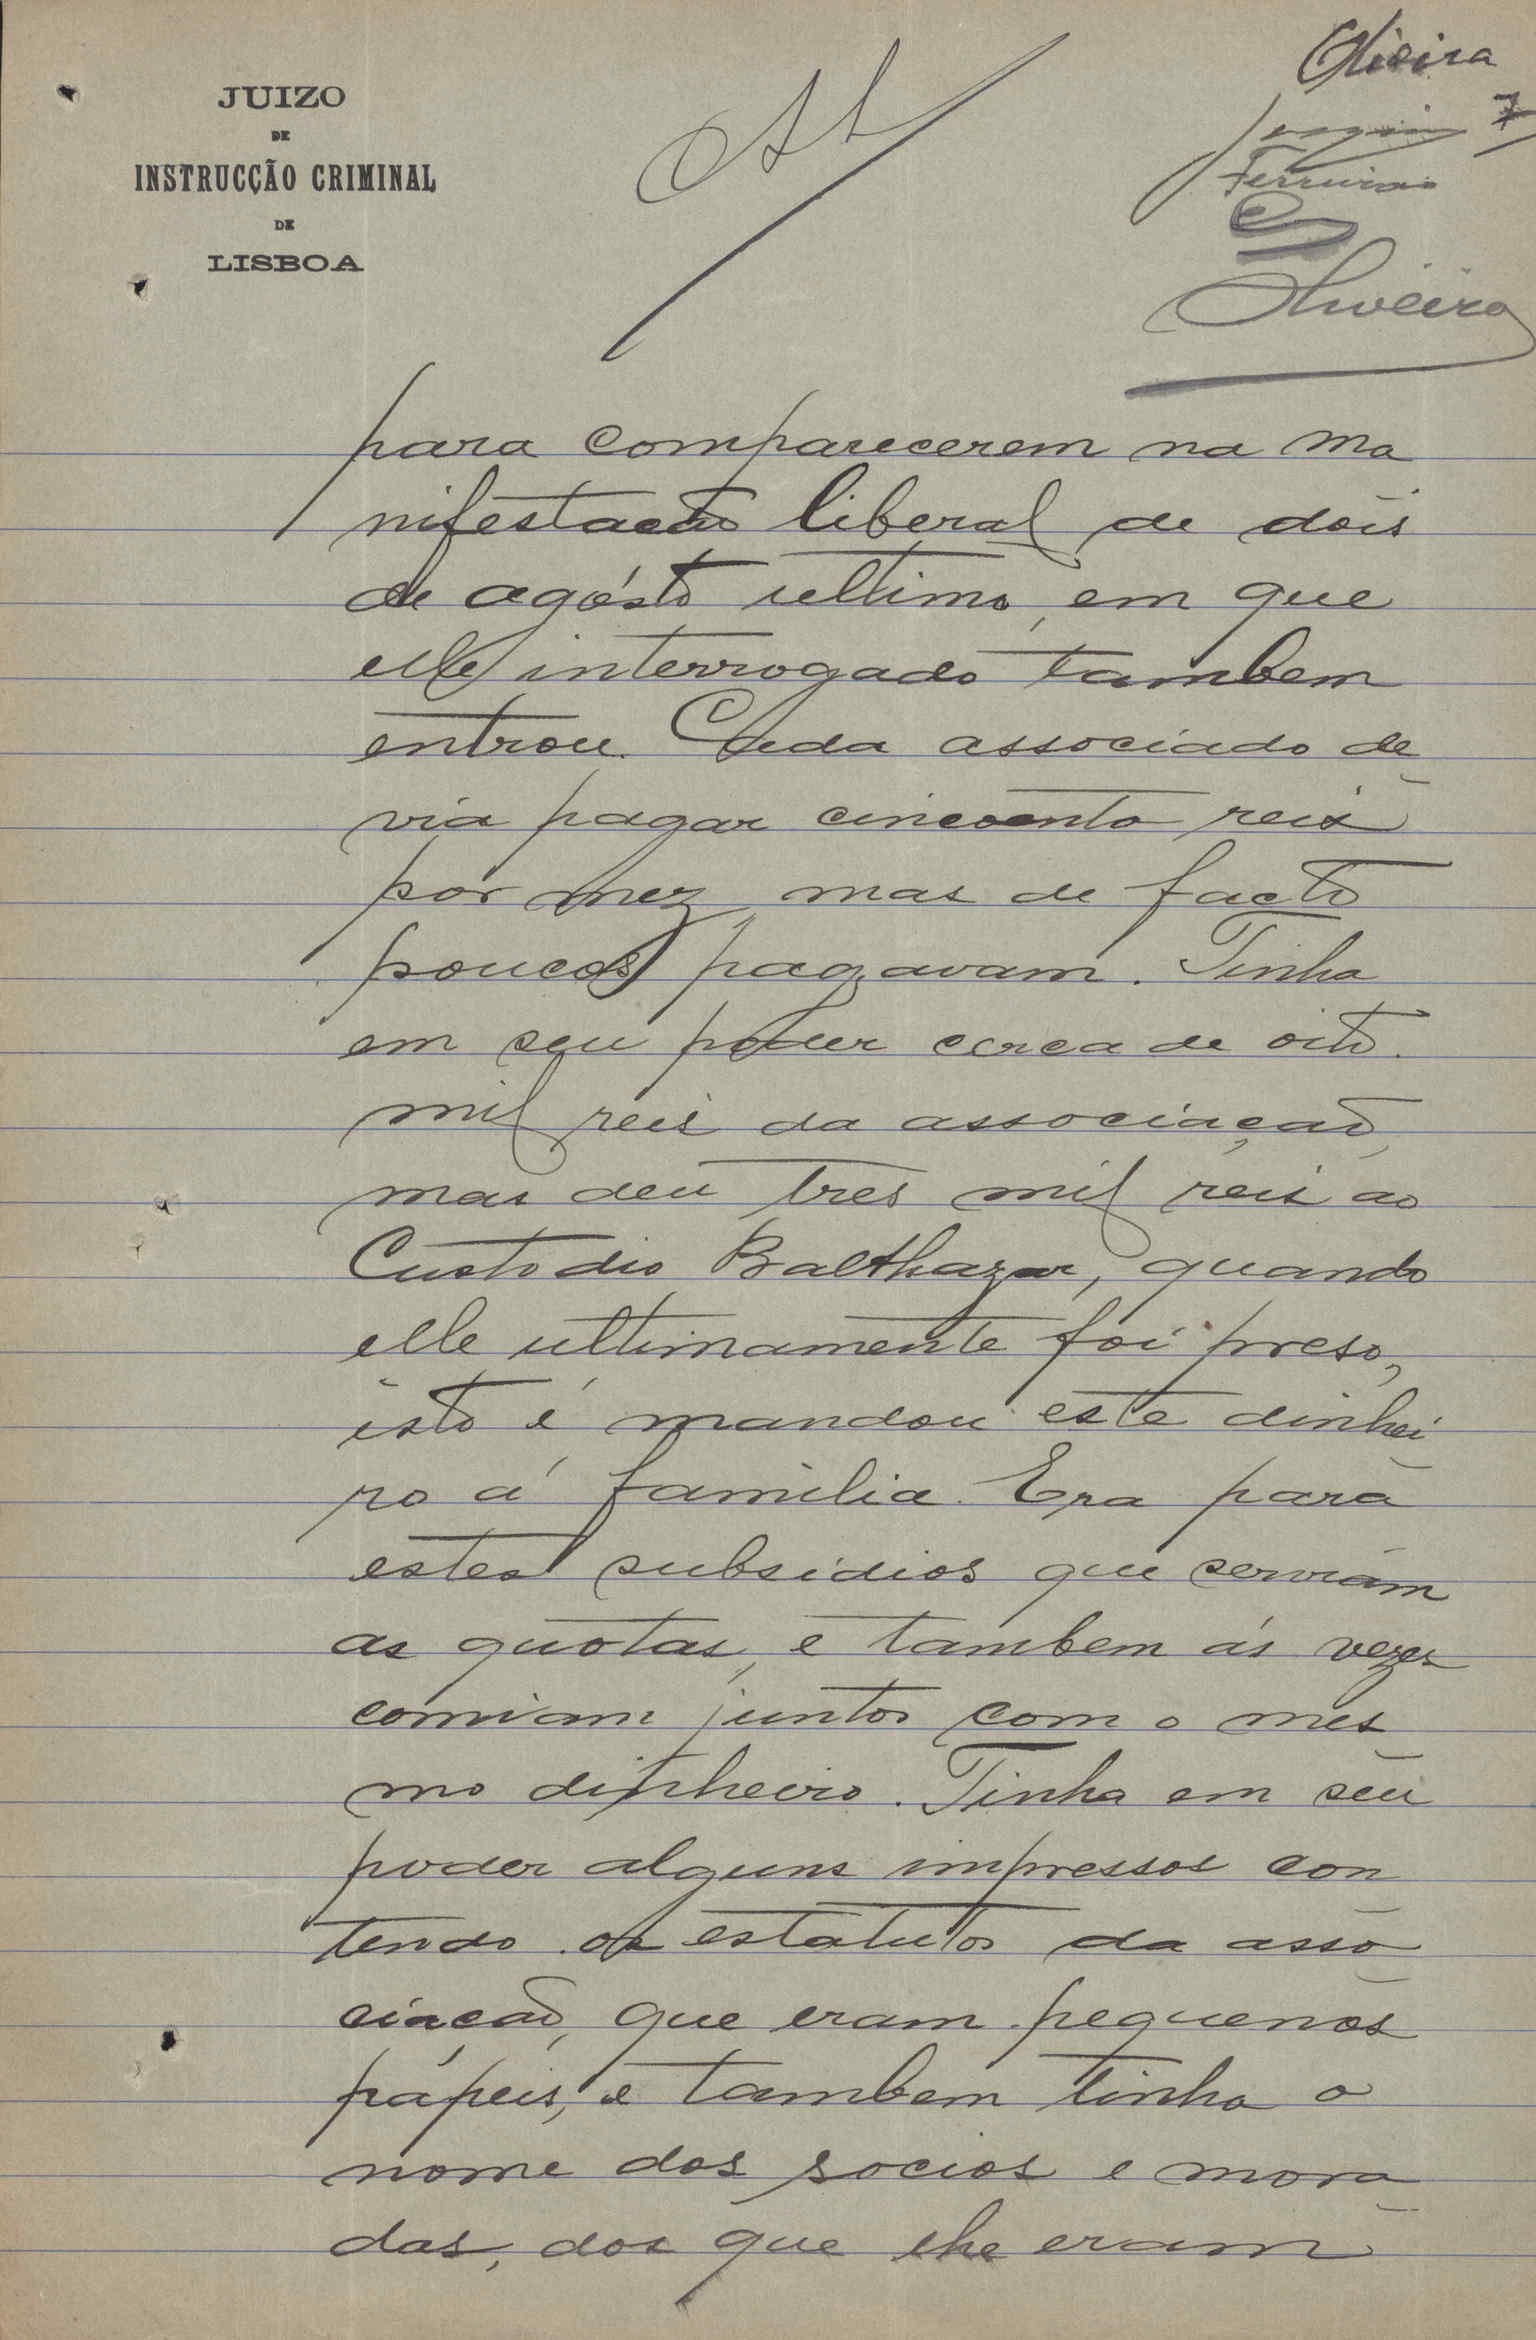 JUIZO
DE
INSTRUCÇÃO CRIMINAL
DE
LISBOA
Oliveira
7
Joaquim
Ferreira
Oliveira
para comparecerem na ma
nifestação liberal de dois
de agósto ultimo, em que
elle interrogado tambem
entrou. Cada associado de
via pagar cincoenta reis
por mez, mas de facto
poucos pagavam. Tinha
em seu poder cerca de oito
mil reis da associação,
mas deu tres mil reis ao
Custodio Balthazar, quando
elle ultimamente foi preso,
isto é mandou este dinhei
ro á familia. Era para
estes subsidios que serviam
as quotas, e tambem ás vezes
comiam juntos com o mes
mo dinheiro. Tinha em seu
poder alguns impressos con
tendo os estatutos da asso
ciação, que eram pequenos
papeis, e tambem tinha o
nome dos socios e mora
das, dos que lhe eram